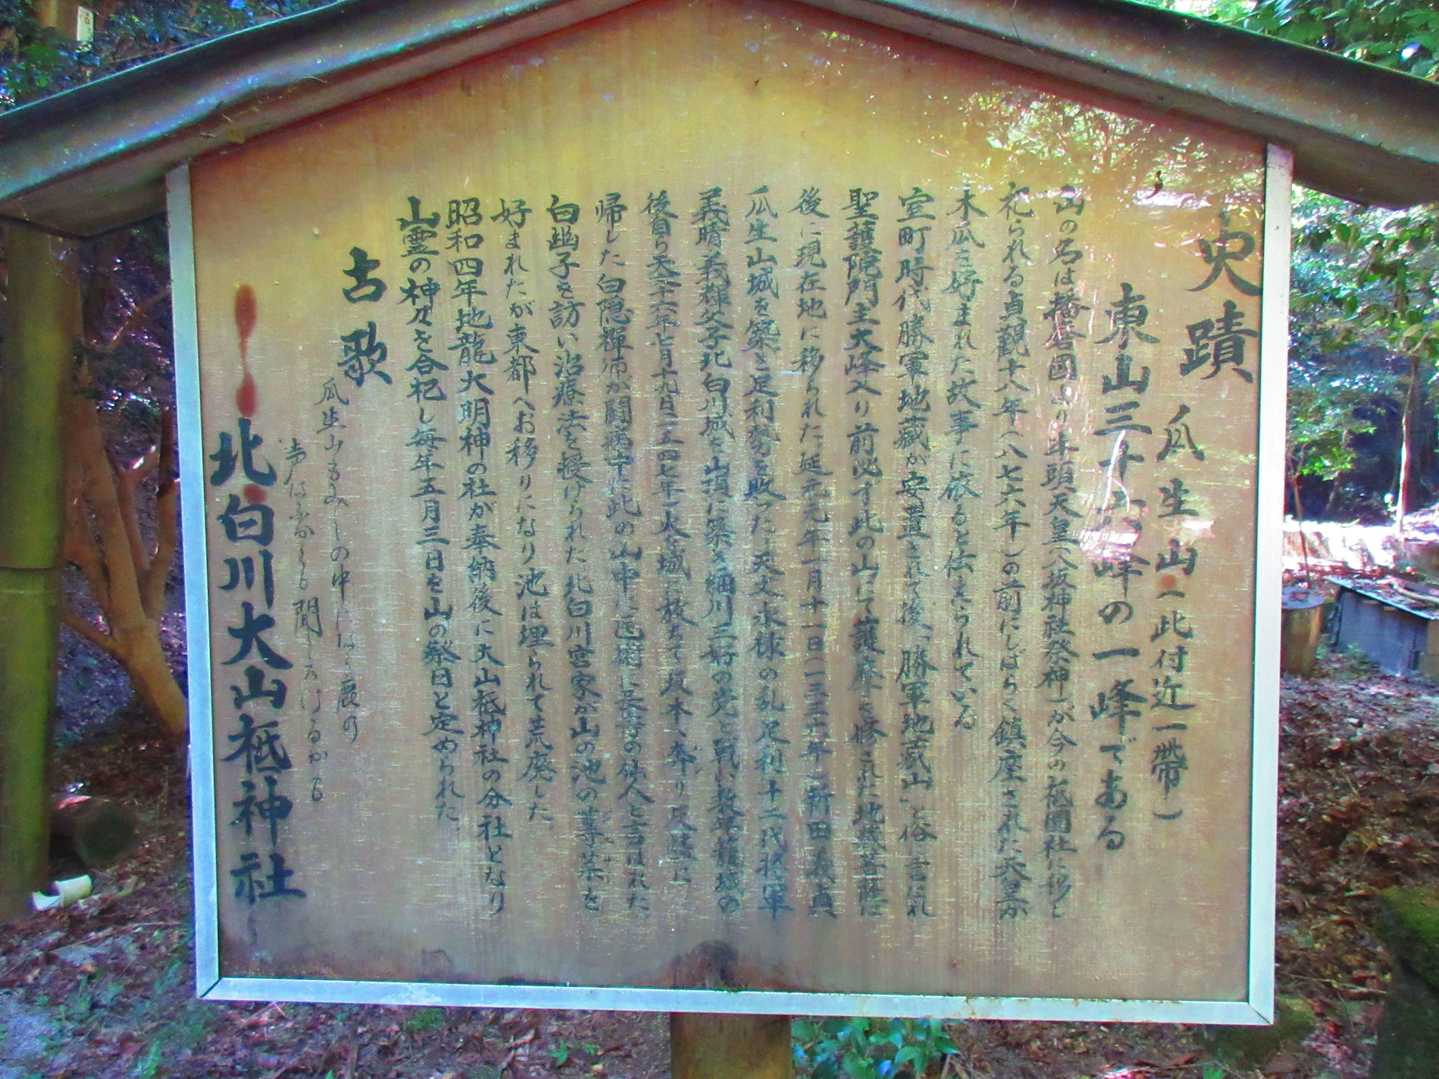 史蹟 瓜生山(此付近一帶)
東山三十六峰の一峰である
山の名は播磨國より牛頭天皇(八坂神社祭神)が今の祗園社に移し
祀られる貞観十八年(八七六年)の前にしばらく鎮座された天皇が
木瓜を好まれた故事に依ると伝えられている
室町時代勝軍地蔵が安置されて後「勝軍地蔵山」と俗言され
聖護院門主大峰入り前必ず此の山にて護摩を修された地蔵菩薩は
後に現在地に移られた延元元年一月十一日(一三三六年)新田義貞
瓜生山城を築き足利勢を敗った天文永禄の乱足利十二代将軍
義晴義輝父子北白川城を山頂に築き細川三好の党と戦い数年籠城の
後自ら天文十六年七月十九日(一五四七年)火を城に放ちて坂本へ奔り
帰した白隠禅师が闘病中に此の山中に医術に長寿の仙人と言はれた
白幽子を訪い治療法を授けられた北白川宮家が山の池の蓴菜を
好まれたが東都へお移りになり池は埋られて荒廃した
昭和四年地龍大明神の社が奉納後に大山祗神社の分社となり
山霊の神々を合祀し毎年五月三日を山の祭日と定められた
古歌
瓜生山もみじの中になく鹿の
声はふかくも聞こえけるかも
北白川大山祗神社